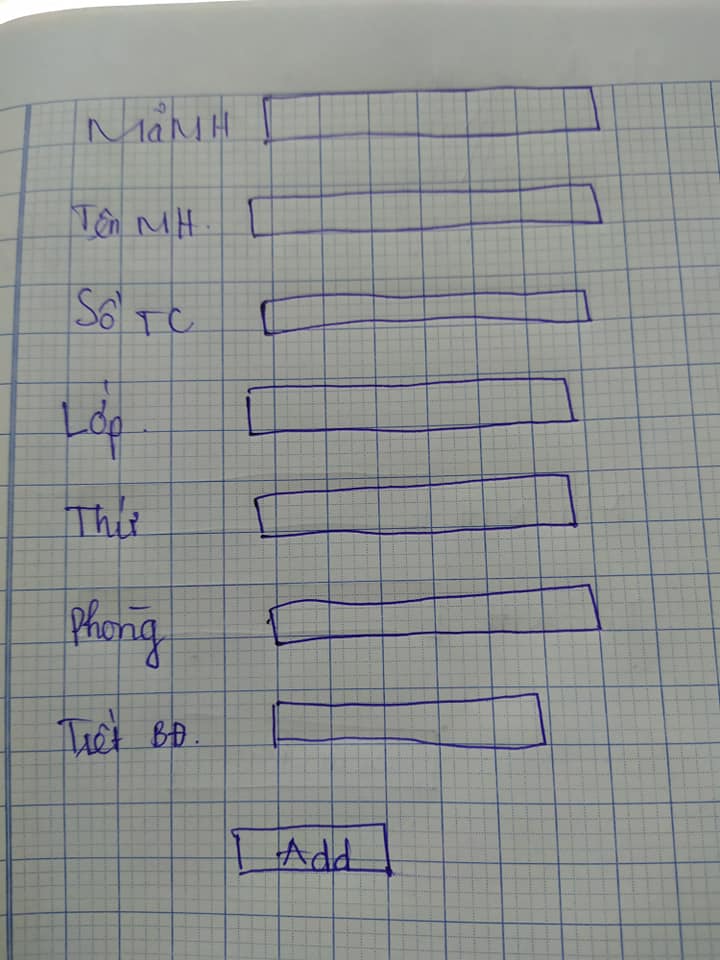 Mã MH
Tên MH.
Số TC
Lớp.
Thứ
Phòng
Tiết BĐ.
Add